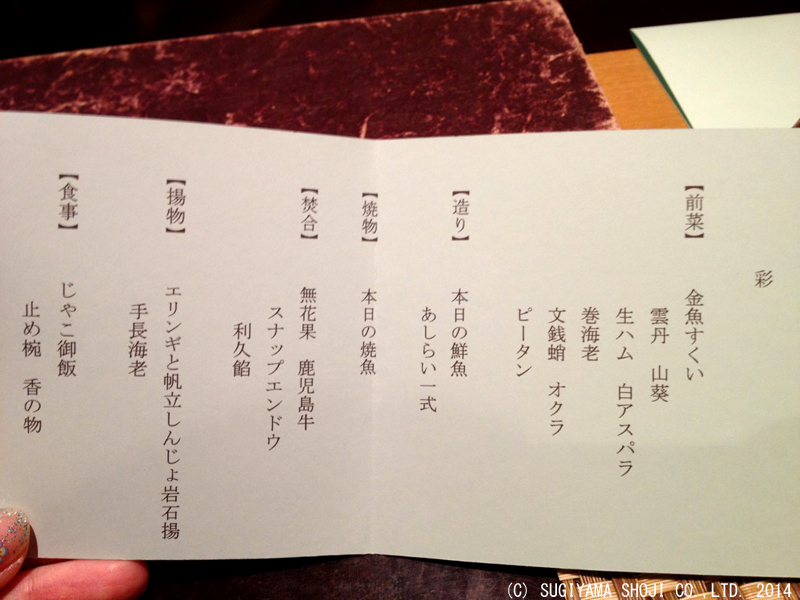 彩
【前菜】 金魚すくい
雲丹 山葵
生ハム 白アスパラ
巻海老
文銭蛸 オクラ
ピータン
【造り】 本日の鮮魚
あしらい一式
【焼物】 本日の焼魚
【焚合】 無花果 鹿児島牛
スナップエンドウ
利久餡
【揚物】 エリンギと帆立しんじょ岩石揚
手長海老
【食事】 じゃこ御飯
止め椀 香の物
(C) SUGIYAMA SHOJI CO.,LTD. 2014